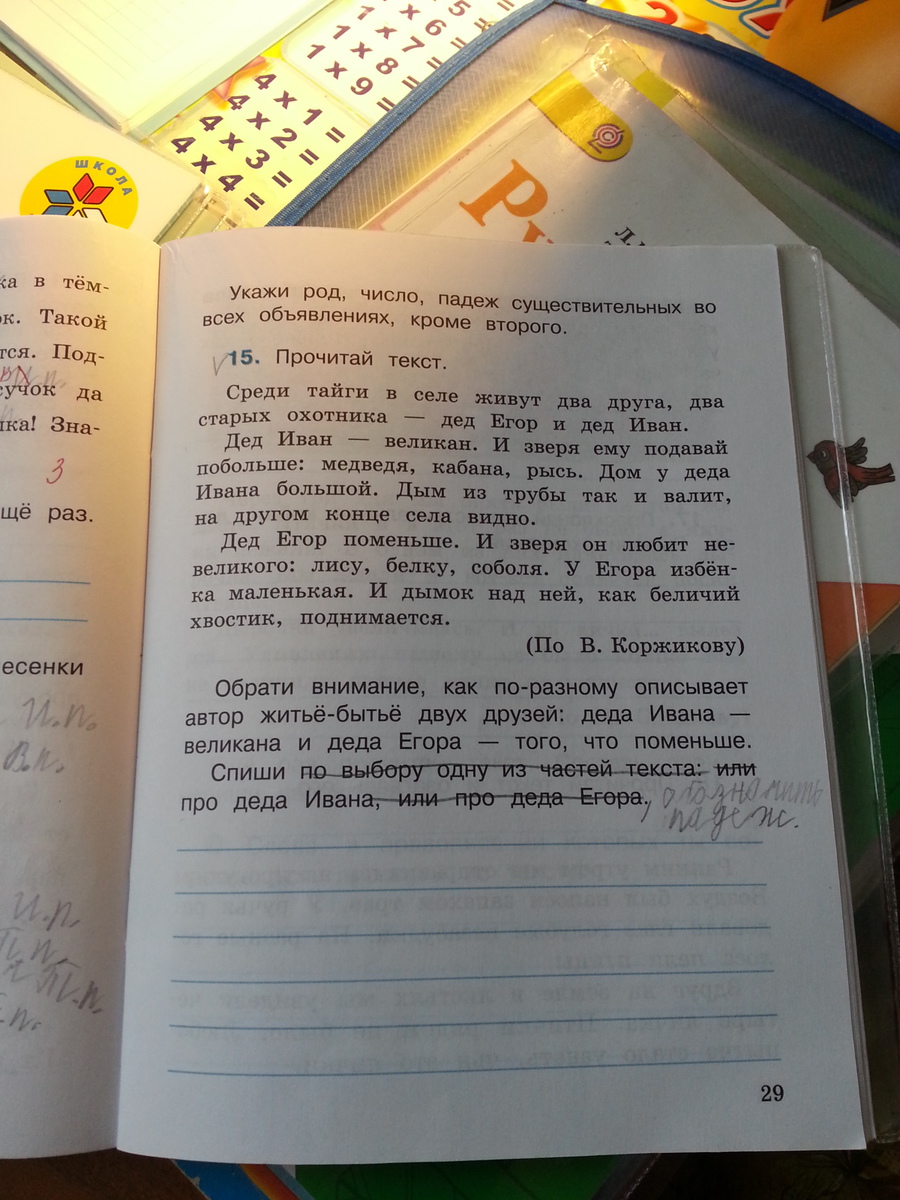 5 =
1 × 6 =
1 × 7 =
1 × 8 =
1 × 9 =
4 × 1 =
4 × 2 =
4 × 3 =
4 × 4 =
ШКОЛА
Ру
ка в тём-
ок. Такой
тся. Под-
сучок да
лка! Зна-
3
щё раз.
есенки
И.п.
В.п.
И.п.
П.п.
Т.п.
Укажи род, число, падеж существительных во
всех объявлениях, кроме второго.
√15. Прочитай текст.
Среди тайги в селе живут два друга, два
старых охотника — дед Егор и дед Иван.
Дед Иван — великан. И зверя ему подавай
побольше: медведя, кабана, рысь. Дом у деда
Ивана большой. Дым из трубы так и валит,
на другом конце села видно.
Дед Егор поменьше. И зверя он любит не-
великого: лису, белку, соболя. У Егора избён-
ка маленькая. И дымок над ней, как беличий
хвостик, поднимается.
(По В. Коржикову)
Обрати внимание, как по-разному описывает
автор житьё-бытьё двух друзей: деда Ивана —
великана и деда Егора — того, что поменьше.
Спиши по выбору одну из частей текста: или
про деда Ивана, или про деда Егора, обозначить
падеж.
29